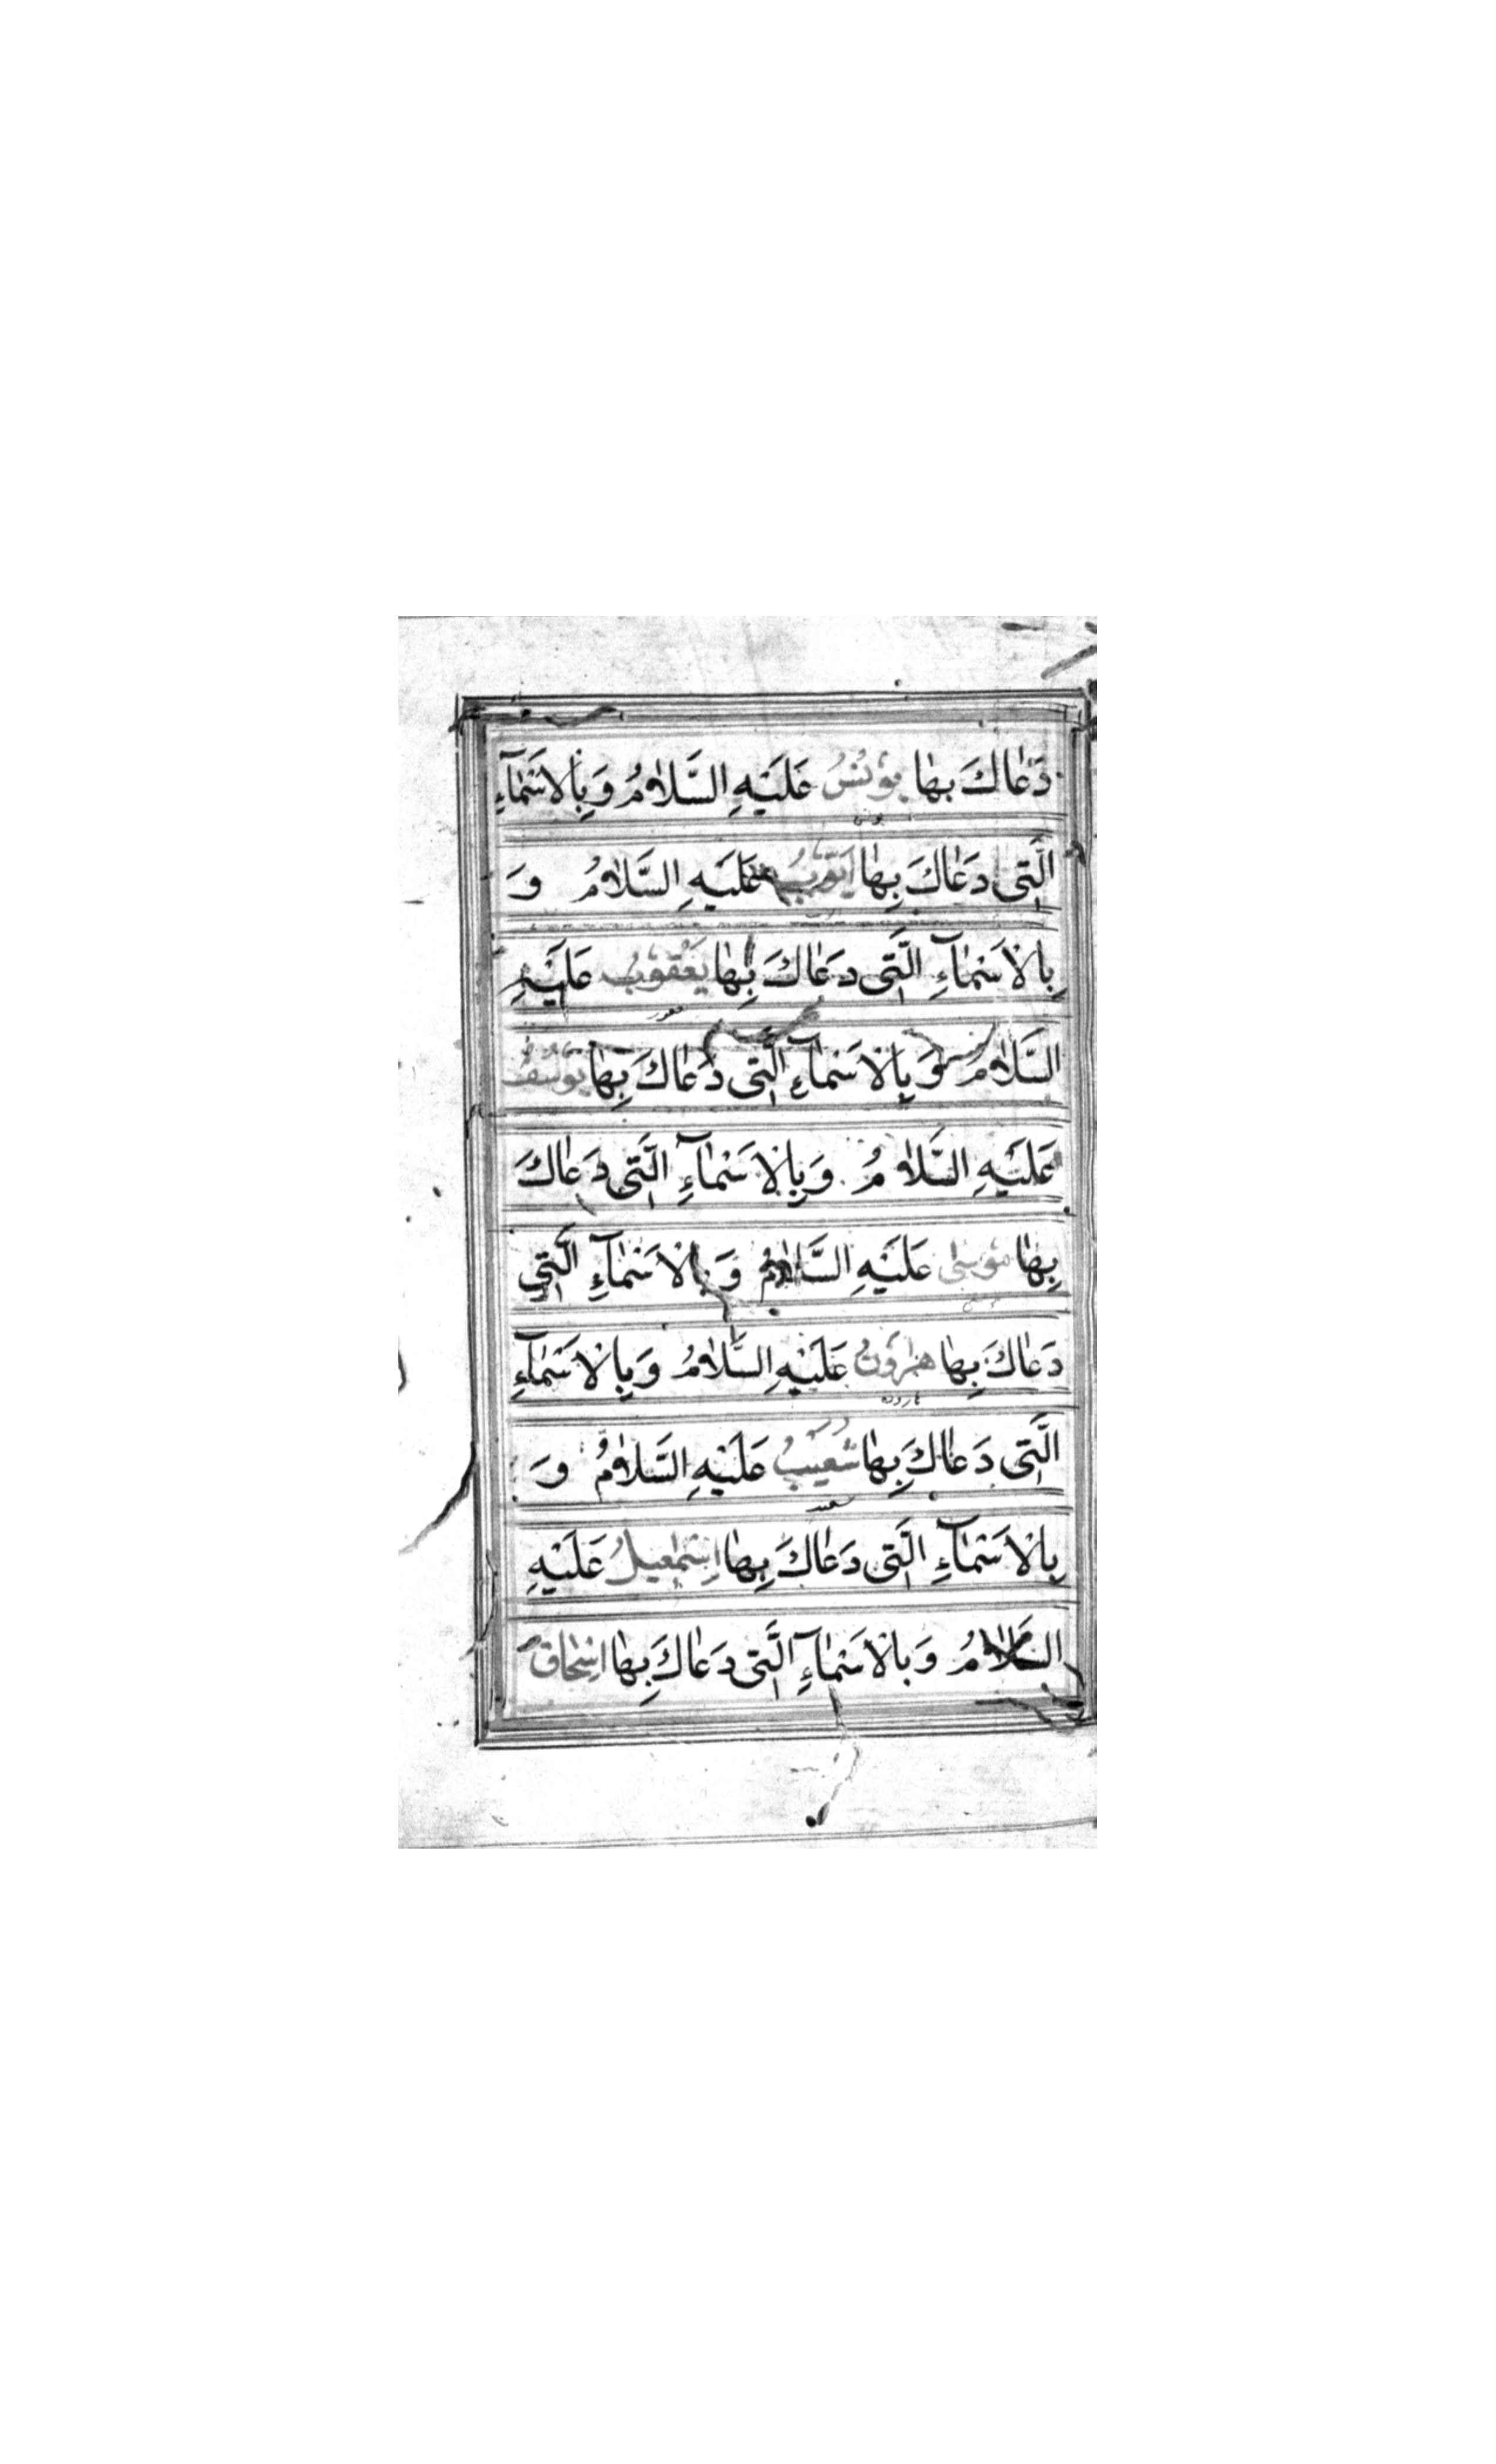 دَعٰاكَ بِهٰا يُونُسُ عَلَيْهِ السَّلٰامُ وَبِالْاَسْمٰآءِ
الَّتِى دَعٰاكَ بِهٰا اَيُّوبُ عَلَيْهِ السَّلٰامُ وَ
بِالْاَسْمٰآءِ الَّتِى دَعٰاكَ بِهٰا يَعْقُوبُ عَلَيْهِ
السَّلٰامُ وَبِالْاَسْمٰآءِ الَّتِى دَعٰاكَ بِهٰا يُوسُفُ
عَلَيْهِ السَّلٰامُ وَبِالْاَسْمٰآءِ الَّتِى دَعٰاكَ
بِهٰا مُوسٰى عَلَيْهِ السَّلٰامُ وَبِالْاَسْمٰآءِ الَّتِى
دَعٰاكَ بِهٰا هٰرُونُ عَلَيْهِ السَّلٰامُ وَبِالْاَسْمٰآءِ
الَّتِى دَعٰاكَ بِهٰا شُعَيْبُ عَلَيْهِ السَّلٰامُ وَ
بِالْاَسْمٰآءِ الَّتِى دَعٰاكَ بِهٰا اِسْمٰعِيلُ عَلَيْهِ
السَّلٰامُ وَبِالْاَسْمٰآءِ الَّتِى دَعٰاكَ بِهٰا اِسْحٰاقُ